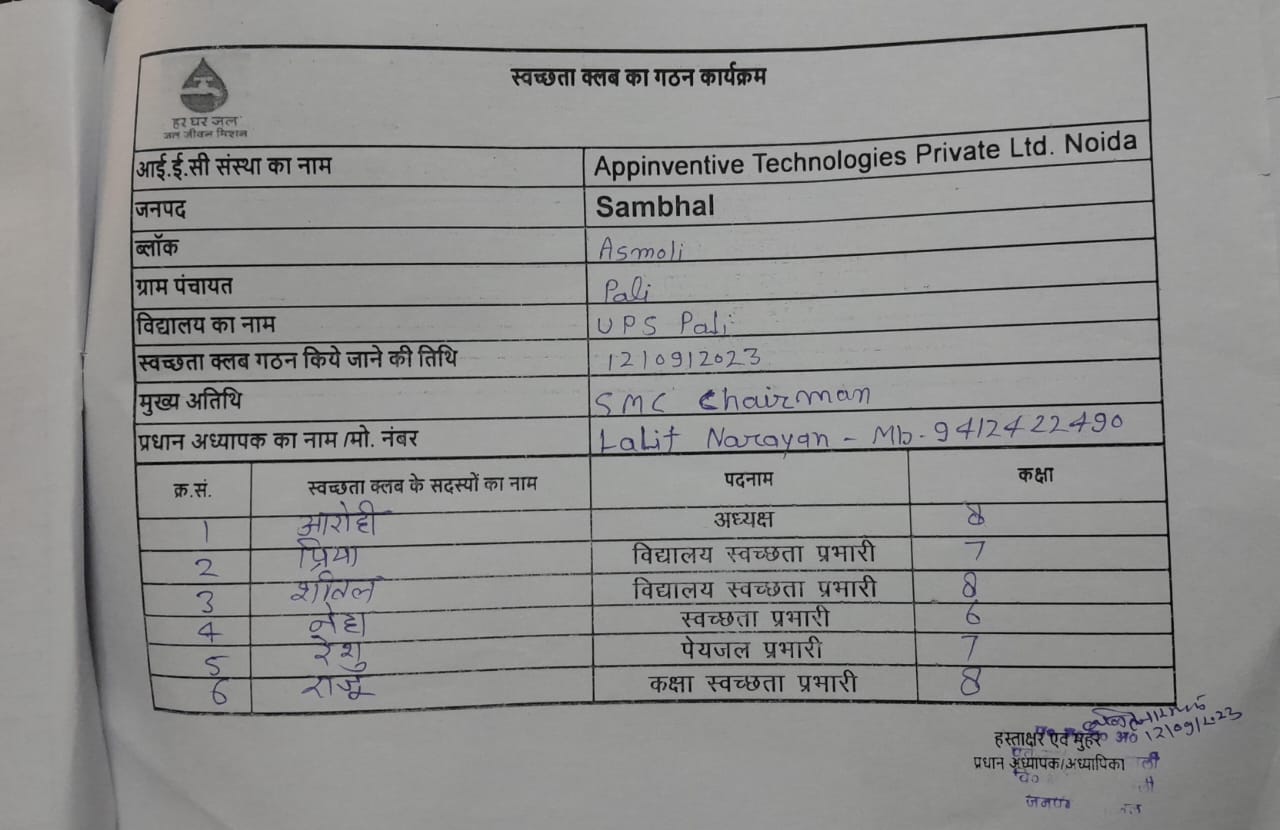 स्वच्छता क्लब का गठन कार्यक्रम
हर घर जल
जल जीवन मिशन
आई.ई.सी संस्था का नाम Appinventive Technologies Private Ltd. Noida
जनपद Sambhal
ब्लॉक Asmoli
ग्राम पंचायत Pali
विद्यालय का नाम UPS Pali
स्वच्छता क्लब गठन किये जाने की तिथि 12/09/2023
मुख्य अतिथि SMC Chairman
प्रधान अध्यापक का नाम /मो. नंबर Lalit Narayan - Mb- 9412422490
क्र.सं. स्वच्छता क्लब के सदस्यों का नाम पदनाम कक्षा
1 आरोही अध्यक्ष 8
2 प्रिया विद्यालय स्वच्छता प्रभारी 7
3 शीतल विद्यालय स्वच्छता प्रभारी 8
4 नेहा स्वच्छता प्रभारी 6
5 रेशु पेयजल प्रभारी 7
6 राजू कक्षा स्वच्छता प्रभारी 8
12/09/2023
हस्ताक्षर एवं मुहर
प्रधान अध्यापक/अध्यापिका